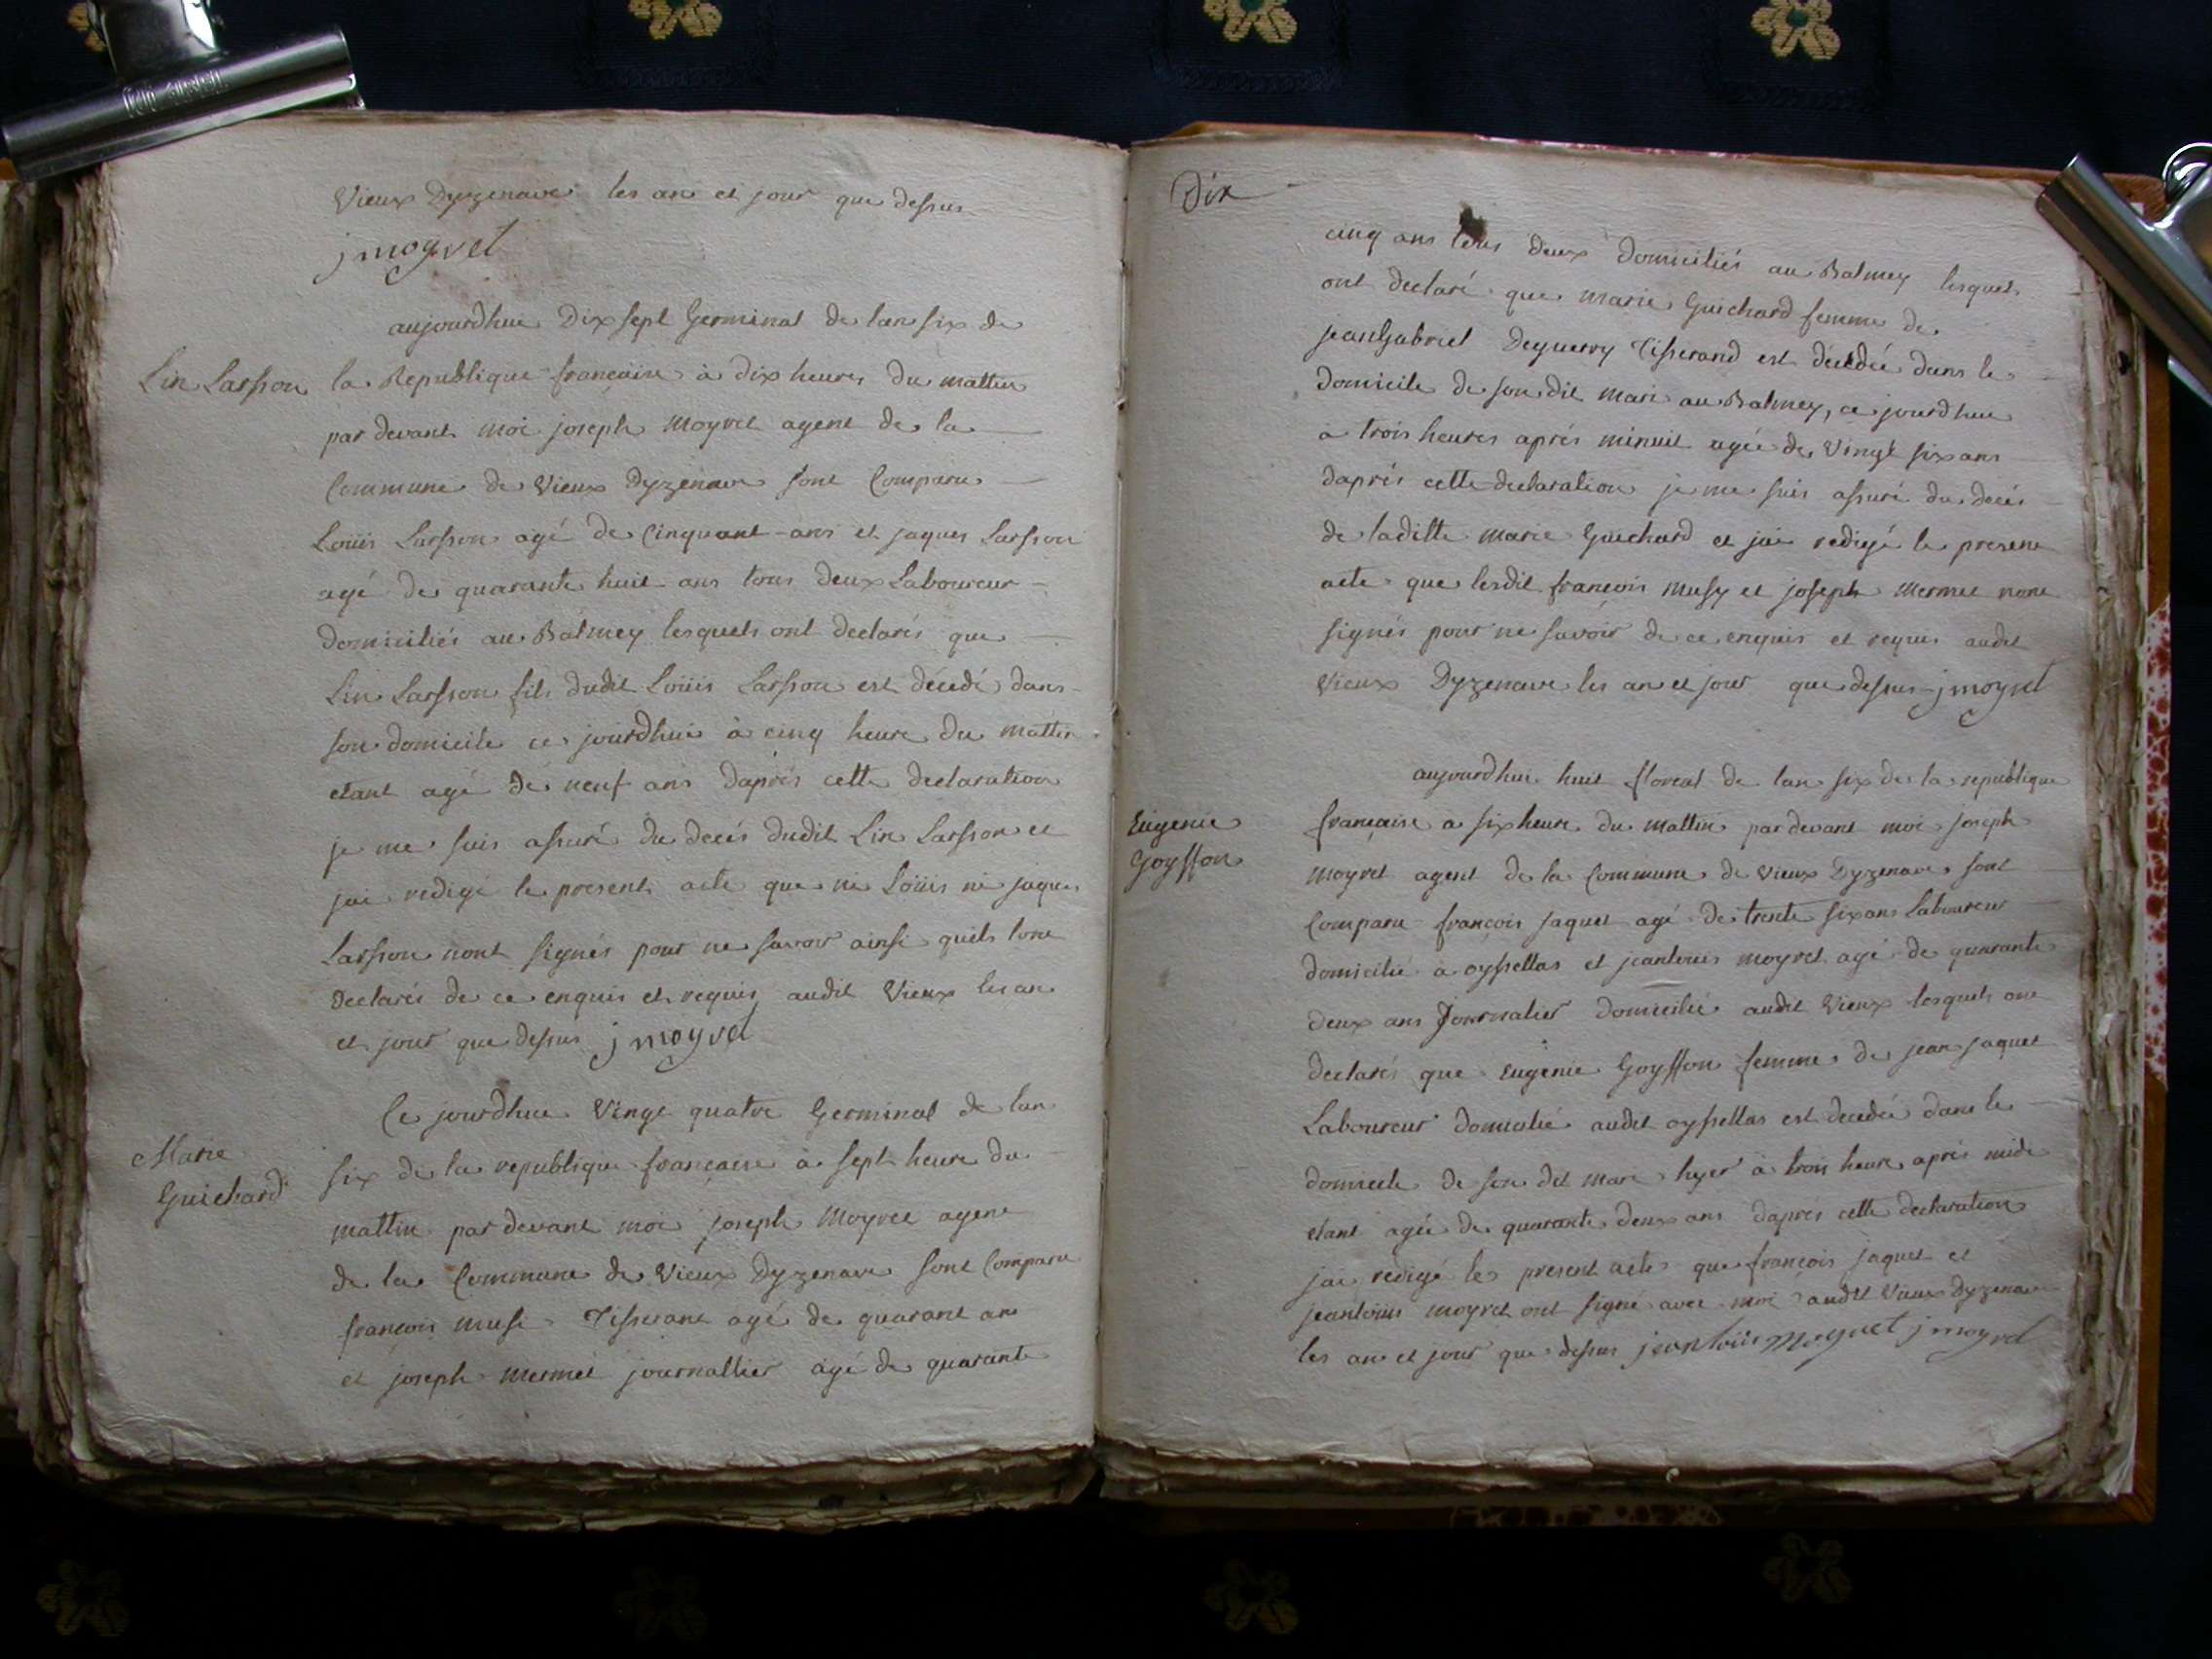 Vieux Dyzenave les an et jour que dessus
j moyret
aujourdhui Dix sept Germinal de lan six de
Lin Larsson
la Republique francaise à dix heures du mattin
par devant moi joseph moyret agent de la
Commune de Vieux Dyzenave sont Comparu
Loüis Larsson agé de Cinquant ans et jaques Larsson
agé de quarante huit ans tous deux Laboureur
domiciliés au Balmey lesquels ont declarés que
Lin Larsson fils dudit Loüis Larsson est décedé dans
son domicile ce jourdhui à cinq heure du mattin
etant agé de neuf ans daprés cette declaration
je me suis assuré du decés dudit Lin Larsson et
jai redigé le present acte que ni Loüis ni jaques
Larsson nont signés pour ne savoir ainsi quils lont
declarés de ce enquis et requis audit Vieux les an
et jour que dessus j moyret
Ce jourdhui Vingt quatre Germinal de lan
Marie
Guichard
six de la republique francaise à sept heure du
mattin par devant moi joseph Moyret agent
de la Commune de Vieux Dyzenave sont Comparu
françois musi Tisserant agé de quarant an
et joseph mermet journallier agé de quarante
Dix
cinq ans tous deux domiciliés au Balmey lesquels
ont declaré que marie Guichard femme de
jean Gabriel Deguerry Tisserand est décédée dans le
domicile de son dit mari au Balmey, ce jourdhui
à trois heures aprés minuit agée de Vingt six ans
daprés cette declaration je me suis assuré du decés
de laditte marie Guichard et jai redigé le present
acte que lesdit françois musy et joseph mermet nont
signés pour ne savoir de ce enquis et requis audit
Vieux Dyzenave les an et jour que dessus j moyret
aujourdhui huit floreal de lan six de la republique
Eugenie
Goyffon
francaise a six heure du mattin par devant moi joseph
moyret agent de la Commune de Vieux Dyzenave sont
Comparu françois jaquet agé de trente six ans Laboureur
domicilié à oyssellas et jeanlouis moyret agé de quarante
deux ans Journalier domicilié audit Vieux lesquels ont
declarés que Eugenie Goyffon femme de jean jaquet
Laboureur domicilié audit oyssellas est decedée dans le
domicile de son dit mari hyer à trois heure aprés midi
etant agée de quarante deux ans daprés cette declaration
jai redigé le present acte que françois jaquet et
jeanlouis moyret ont signé avec moi audit Vieux dyzenave
les an et jour que dessus jean loüis moyret j moyret